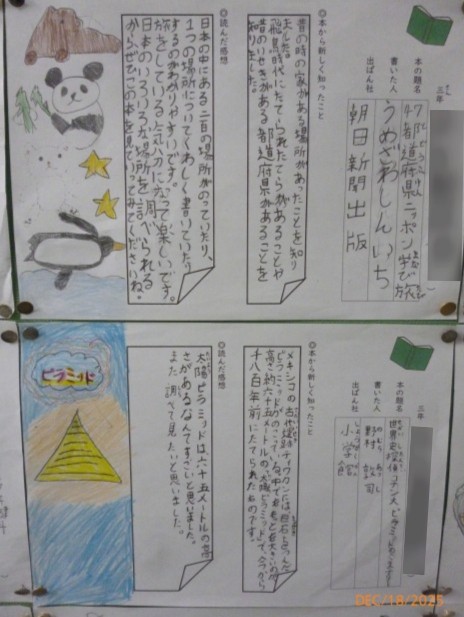 三年
本の題名
47都道府県ニッポン学び旅
書いた人
うめざわしんいち
出ぱん社
朝日新聞出版
◎本から新しく知ったこと
昔の時の家がある場所があったことを知り
ました。
飛鳥時代にたてられたてらがあることや
昔のいせきがある都道府県があることを
知りました。
◎読んだ感想
日本の中にある二百の場所がのっていたり、
1つの場所についてくわしく書いていたり
するのがわかりやすいです。
旅をしている気分になって楽しいです。
日本のいろいろな場所を調べられる
からぜひこの本を見ていってみてくださいね。
三年
本の題名
世界史探偵コナン
ピラミッドの
書いた人
野村
出ぱん社
小学館
◎本から新しく知ったこと
メキシコの古代遺跡テオティワカンには
ピラミッドが
高さ約六十五メートルの太陽ピラミッドで
千八百年前にたてられたものです。
◎読んだ感想
太陽ピラミッドは六十五メートルの高
さがあるなんてすごいと思いました。
また調さて見たいと思いました。
ピラミッド
DEC/18/2025